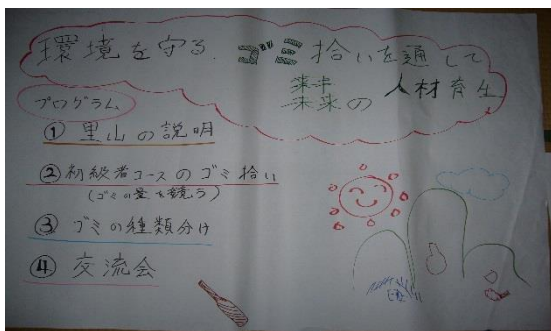 環境を守る ゴミ拾いを通して
未来の人材育生
プログラム
① 里山の説明
② 初級者コースのゴミ拾い
(ゴミの量を競う)
③ ゴミの種類分け
④ 交流会